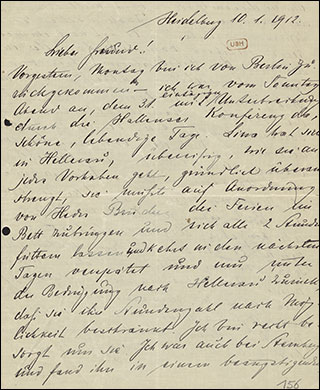 Heidelberg 10.1.1912.
UBH
Lieber Freund!
Vorgestern, Montag bin ich von Berlin zu-
rückgekommen - ich war vom Sonntag
Abend an dem 31. mit Unterbrechung
eintägigen
durch die Hellerauer Konferenz da,
schöne, lebendige Tage. war sehr
in Hellerau, übereifrig, wie sie an
jedes Vorhaben geht, gründlich überan-
strengt, sie mußte auf Anordnung
von die Ferien im
Bett zubringen und sich alle 2 Stunden
füttern lassen und kehrt in den nächsten
Tagen verspätet und nur unter
der Bedingung nach Hellerau zurück
daß sie ihre Stundenzahl nach Mög-
lichkeit beschränkt. Ich bin recht be-
sorgt um sie. Ich war auch bei
und fand ihn in einem beängstigenden
156